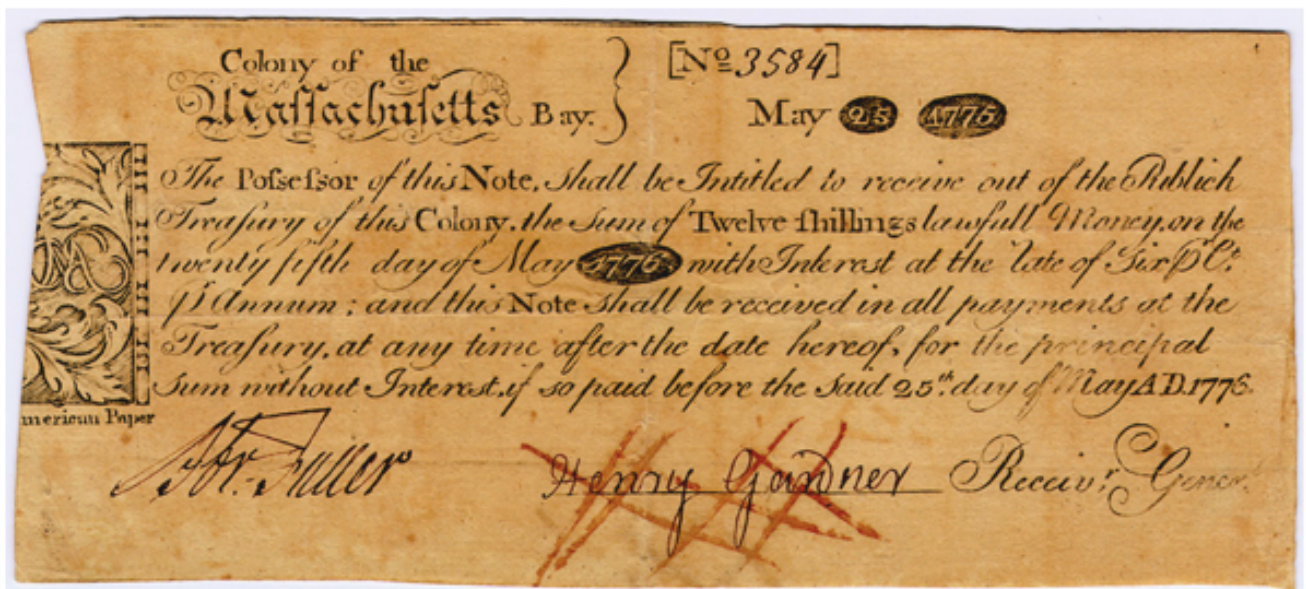 Colony of the
Maſſachuſetts Bay.
[No 3584]
May 25 1775
The Poſseſsor of this Note, shall be Intitled to receive out of the Publick
Treaſury of this Colony, the Sum of Twelve ſhillings lawfull Money, on the
twenty fifth day of May 1776 with Interest at the rate of Six ⅌ Ct.
⅌ Annum; and this Note shall be received in all payments at the
Treaſury, at any time after the date hereof, for the principal
Sum without Interest, if so paid before the said 25th. day of May A D.1776.
merican Paper
Abr. Fuller
Henry Gardner Receivr. Gener